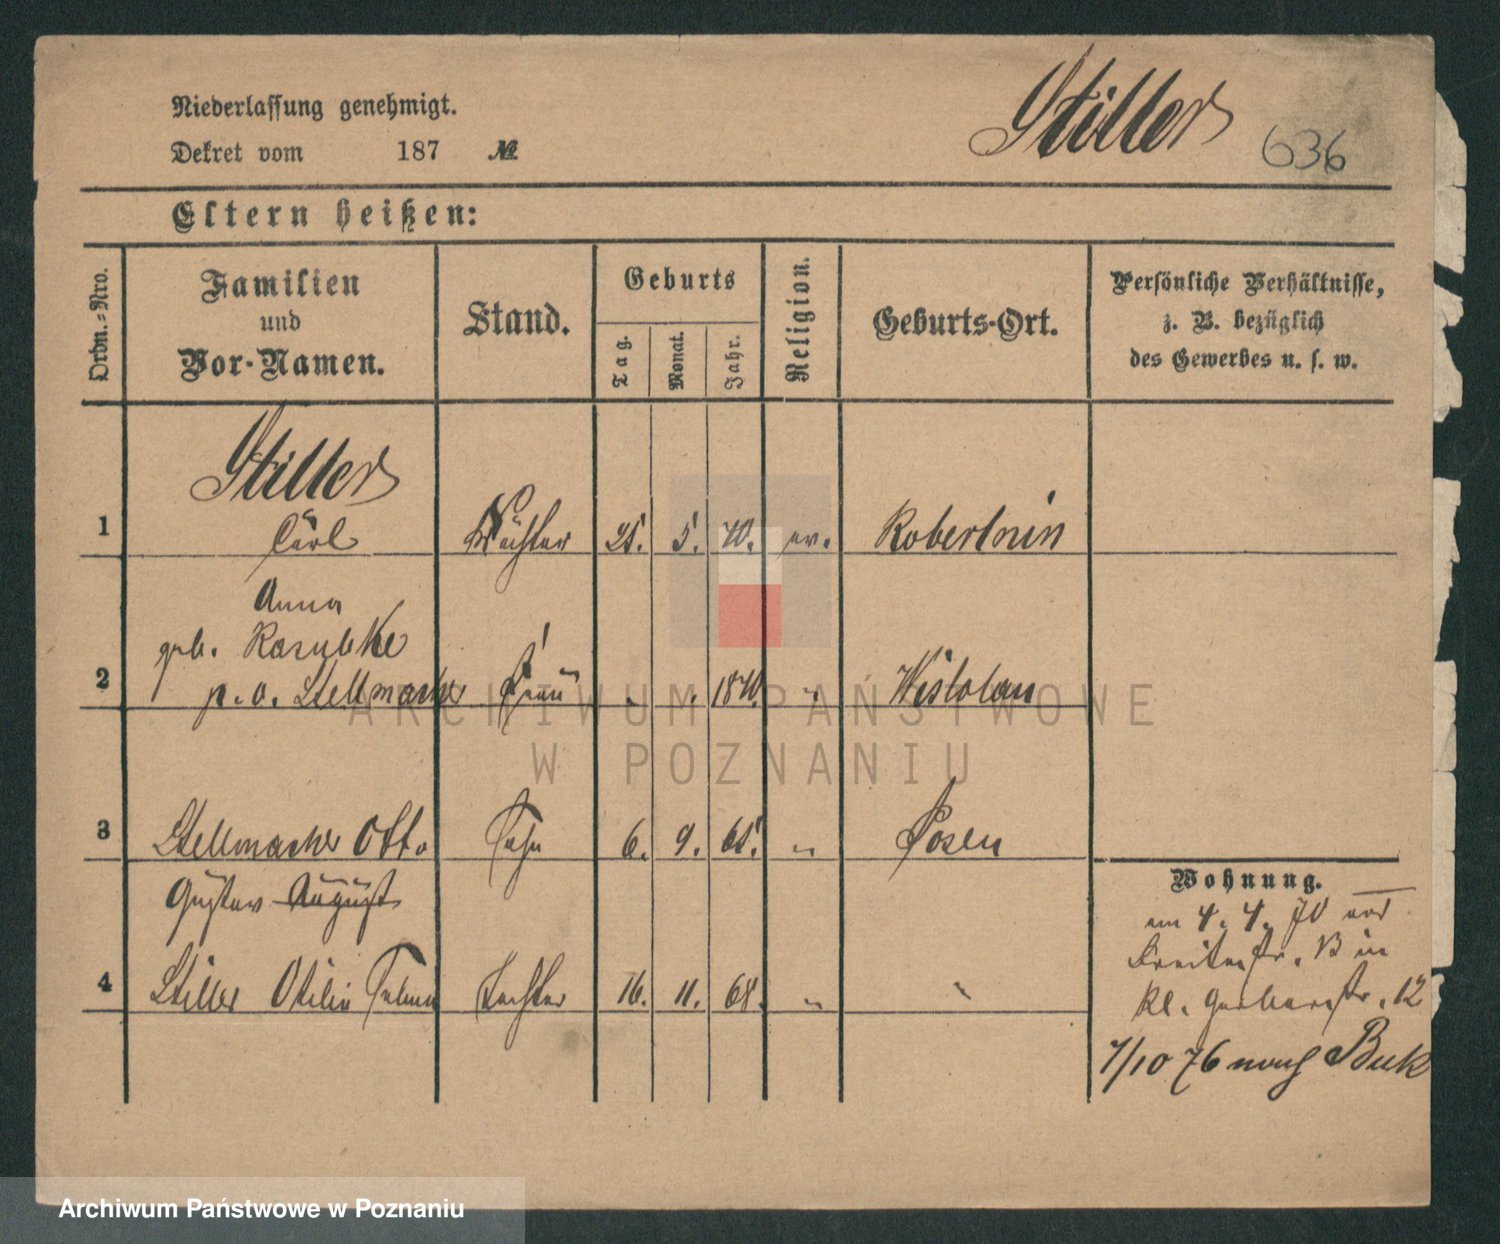 Niederlassung genehmigt.
Dekret vom 187 №
Stiller
636
Eltern heißen:
Ordn.-Nro.
Familien
und
Vor-Namen.
Stand.
Geburts
Tag.
Monat.
Jahr.
Religion.
Geburts-Ort.
Persönliche Verhältnisse,
z. B. bezüglich
des Gewerbes u. s. w.
Stiller
1 Carl Wächter 25. 5. 40. ev.
Anna
geb.
2 p. v. Stellmacher Frau 1840. "
3 Stellmacher Otto Sohn 6. 9. 65. " Posen
Gustav August
4 Stiller Otilie Tochter 16. 11. 68. " "
Wohnung.
am 4. 4. 70 von
Breitestr. 13 in
Kl. Gerberstr. 12
7/10 76 nach Buk
ARCHIWUM PAŃSTWOWE
W POZNANIU
Archiwum Państwowe w Poznaniu